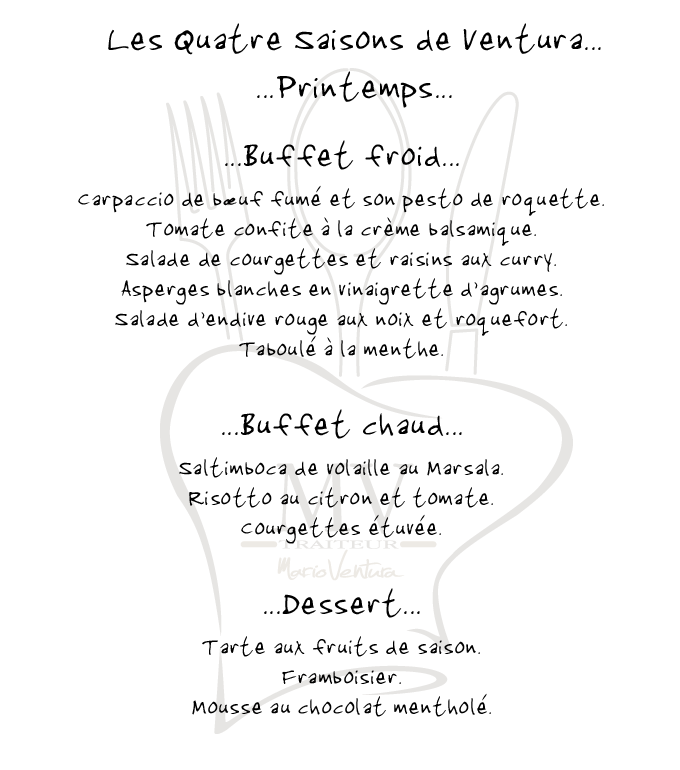 Les Quatre Saisons de Ventura...
...Printemps...
...Buffet froid...
Carpaccio de bœuf fumé et son pesto de roquette.
Tomate confite à la crème balsamique.
Salade de courgettes et raisins aux curry.
Asperges blanches en vinaigrette d'agrumes.
Salade d'endive rouge aux noix et roquefort.
Taboulé à la menthe.
...Buffet chaud...
Saltimboca de volaille au Marsala.
Risotto au citron et tomate.
Courgettes étuvée.
MV
TRAITEUR
Mario Ventura
...Dessert...
Tarte aux fruits de saison.
Framboisier.
Mousse au chocolat mentholé.